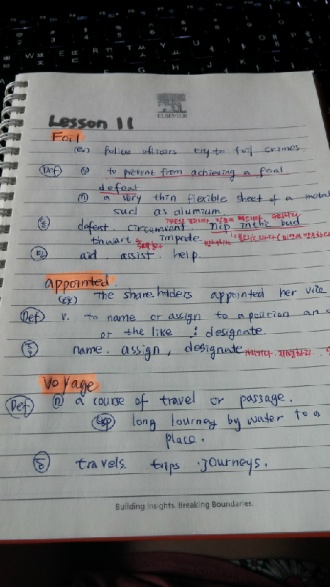 ELSEVIER
Lesson 11
Foil
(ex) Police officers try to foil crimes
Def ⓥ to prevent from achieving a goal
defeat
ⓝ a very thin flexible sheet of a metal
such as alumium
defeat circumvent nip in the bud
thwart impede
aid. assist. help.
appointed
(ex) the shareholders appointed her vice
Def v. to name or assign to a position an
or the like ; designate.
name. assign, designate
Voyage
Def ⓝ a course of travel or passage.
long Journey by water to a
place.
travels. trips. Journeys.
Building Insights. Breaking Boundaries.